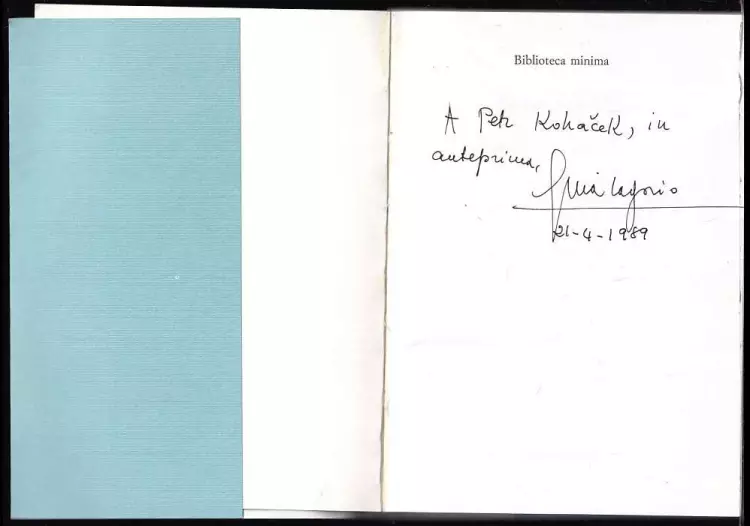 Biblioteca minima
A Petr Kohaček, in
anteprima,
Gina Lagorio
21-4-1989